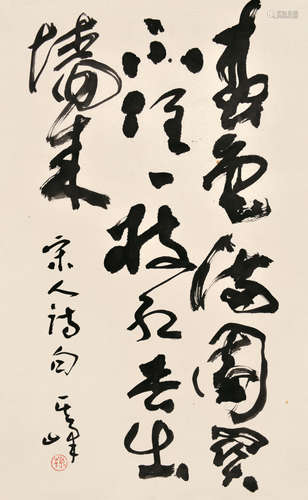 春色满園關
不住一枝红杏出
墙来
宋人詩句 其峰